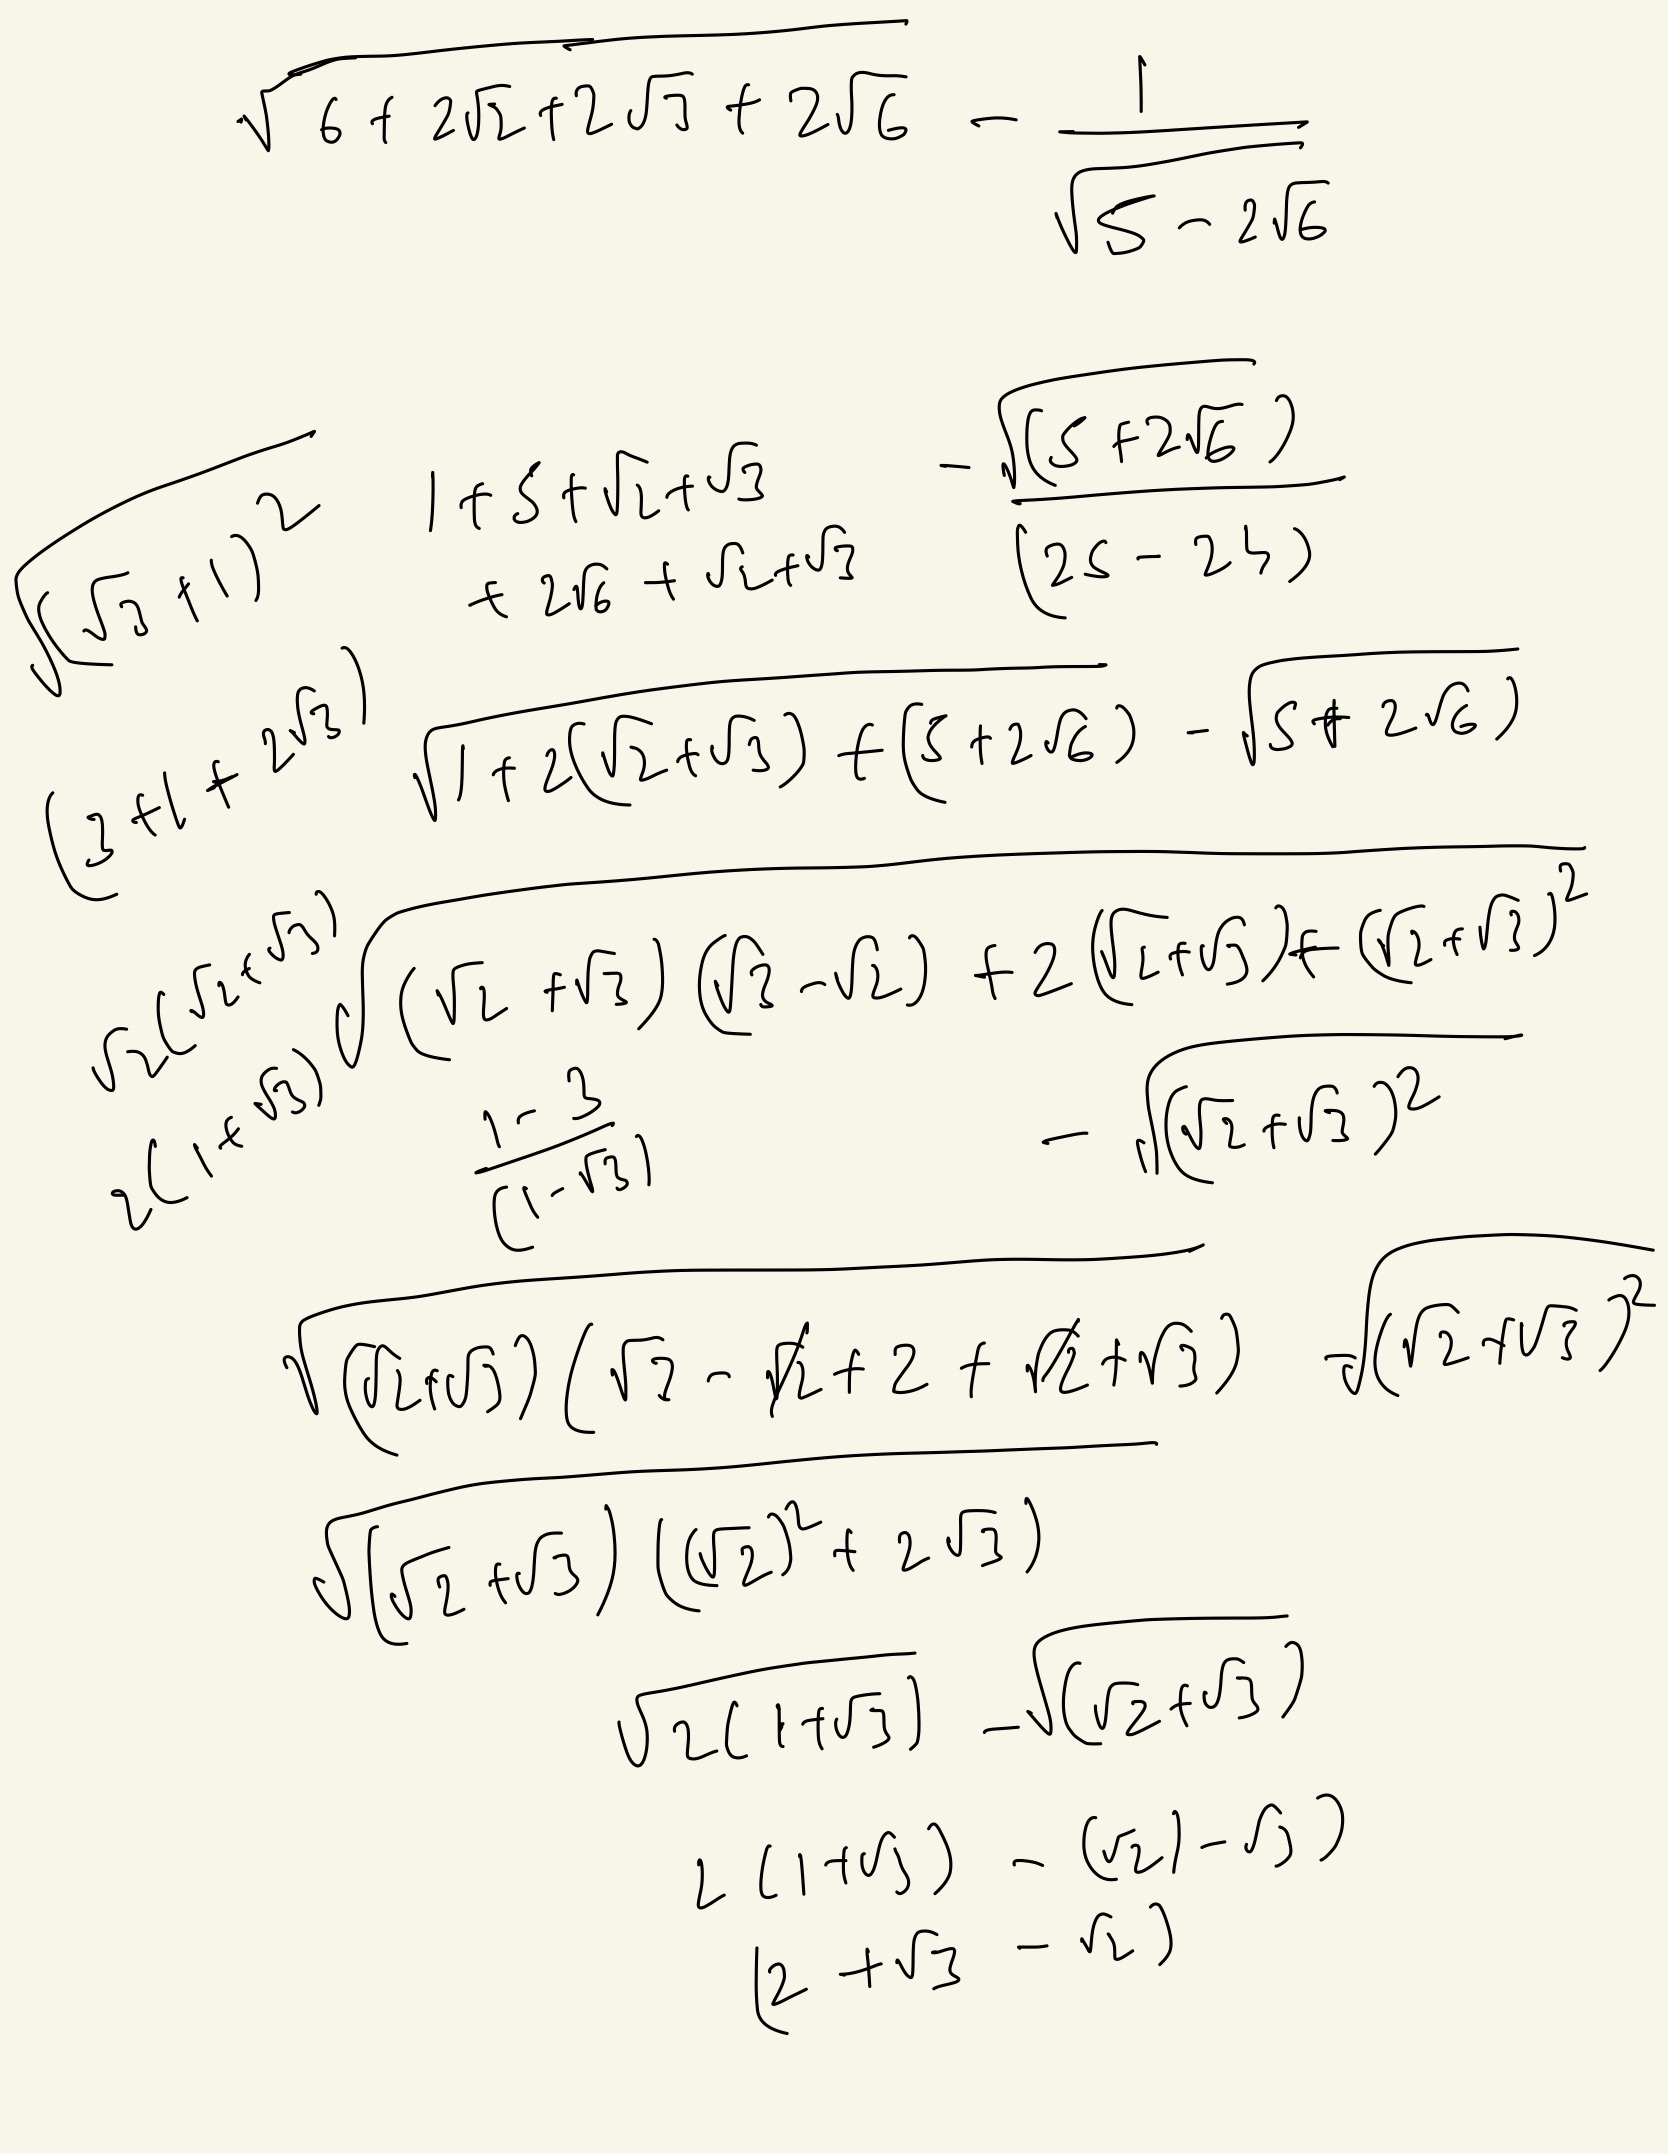 √(6 + 2√2 + 2√3 + 2√6) - 1/√(5 - 2√6)
√((√3 + 1)^2)
1 + 5 + √2 + √3
+ 2√6 + √2 + √3
- √(5 + 2√6)/(25 - 24)
(3 + 1 + 2√3)
√(1 + 2(√2 + √3) + (5 + 2√6)) - √(5 + 2√6)
√2(√2 + √3)
√((√2 + √3)(√3 - √2) + 2(√2 + √3) + (√2 + √3)^2)
2(1 + √3)
(1 - 3)/(1 - √3)
- √((√2 + √3)^2)
√((√2 + √3)(√3 - √2 + 2 + √2 + √3)) - √((√2 + √3)^2)
√((√2 + √3)((√2)^2 + 2√3))
√(2(1 + √3)) - √(√2 + √3)
2(1 + √3) - (√2) - √3)
(2 + √3 - √2)